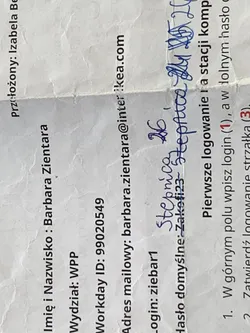 Przełożony: Izabela Be
Imię i Nazwisko : Barbara Zientara
Wydział: WPP
Workday ID: 99020549
Adres mailowy: barbara.zientara@inter.ikea.com
Login: ziebar1
Stepnica 26
Hasło domyślne: Stepnica
Pierwsze logowanie na stacji komp
1. W górnym polu wpisz login (1), a w dolnym hasło
Zatwierdź logowanie strzałką (3